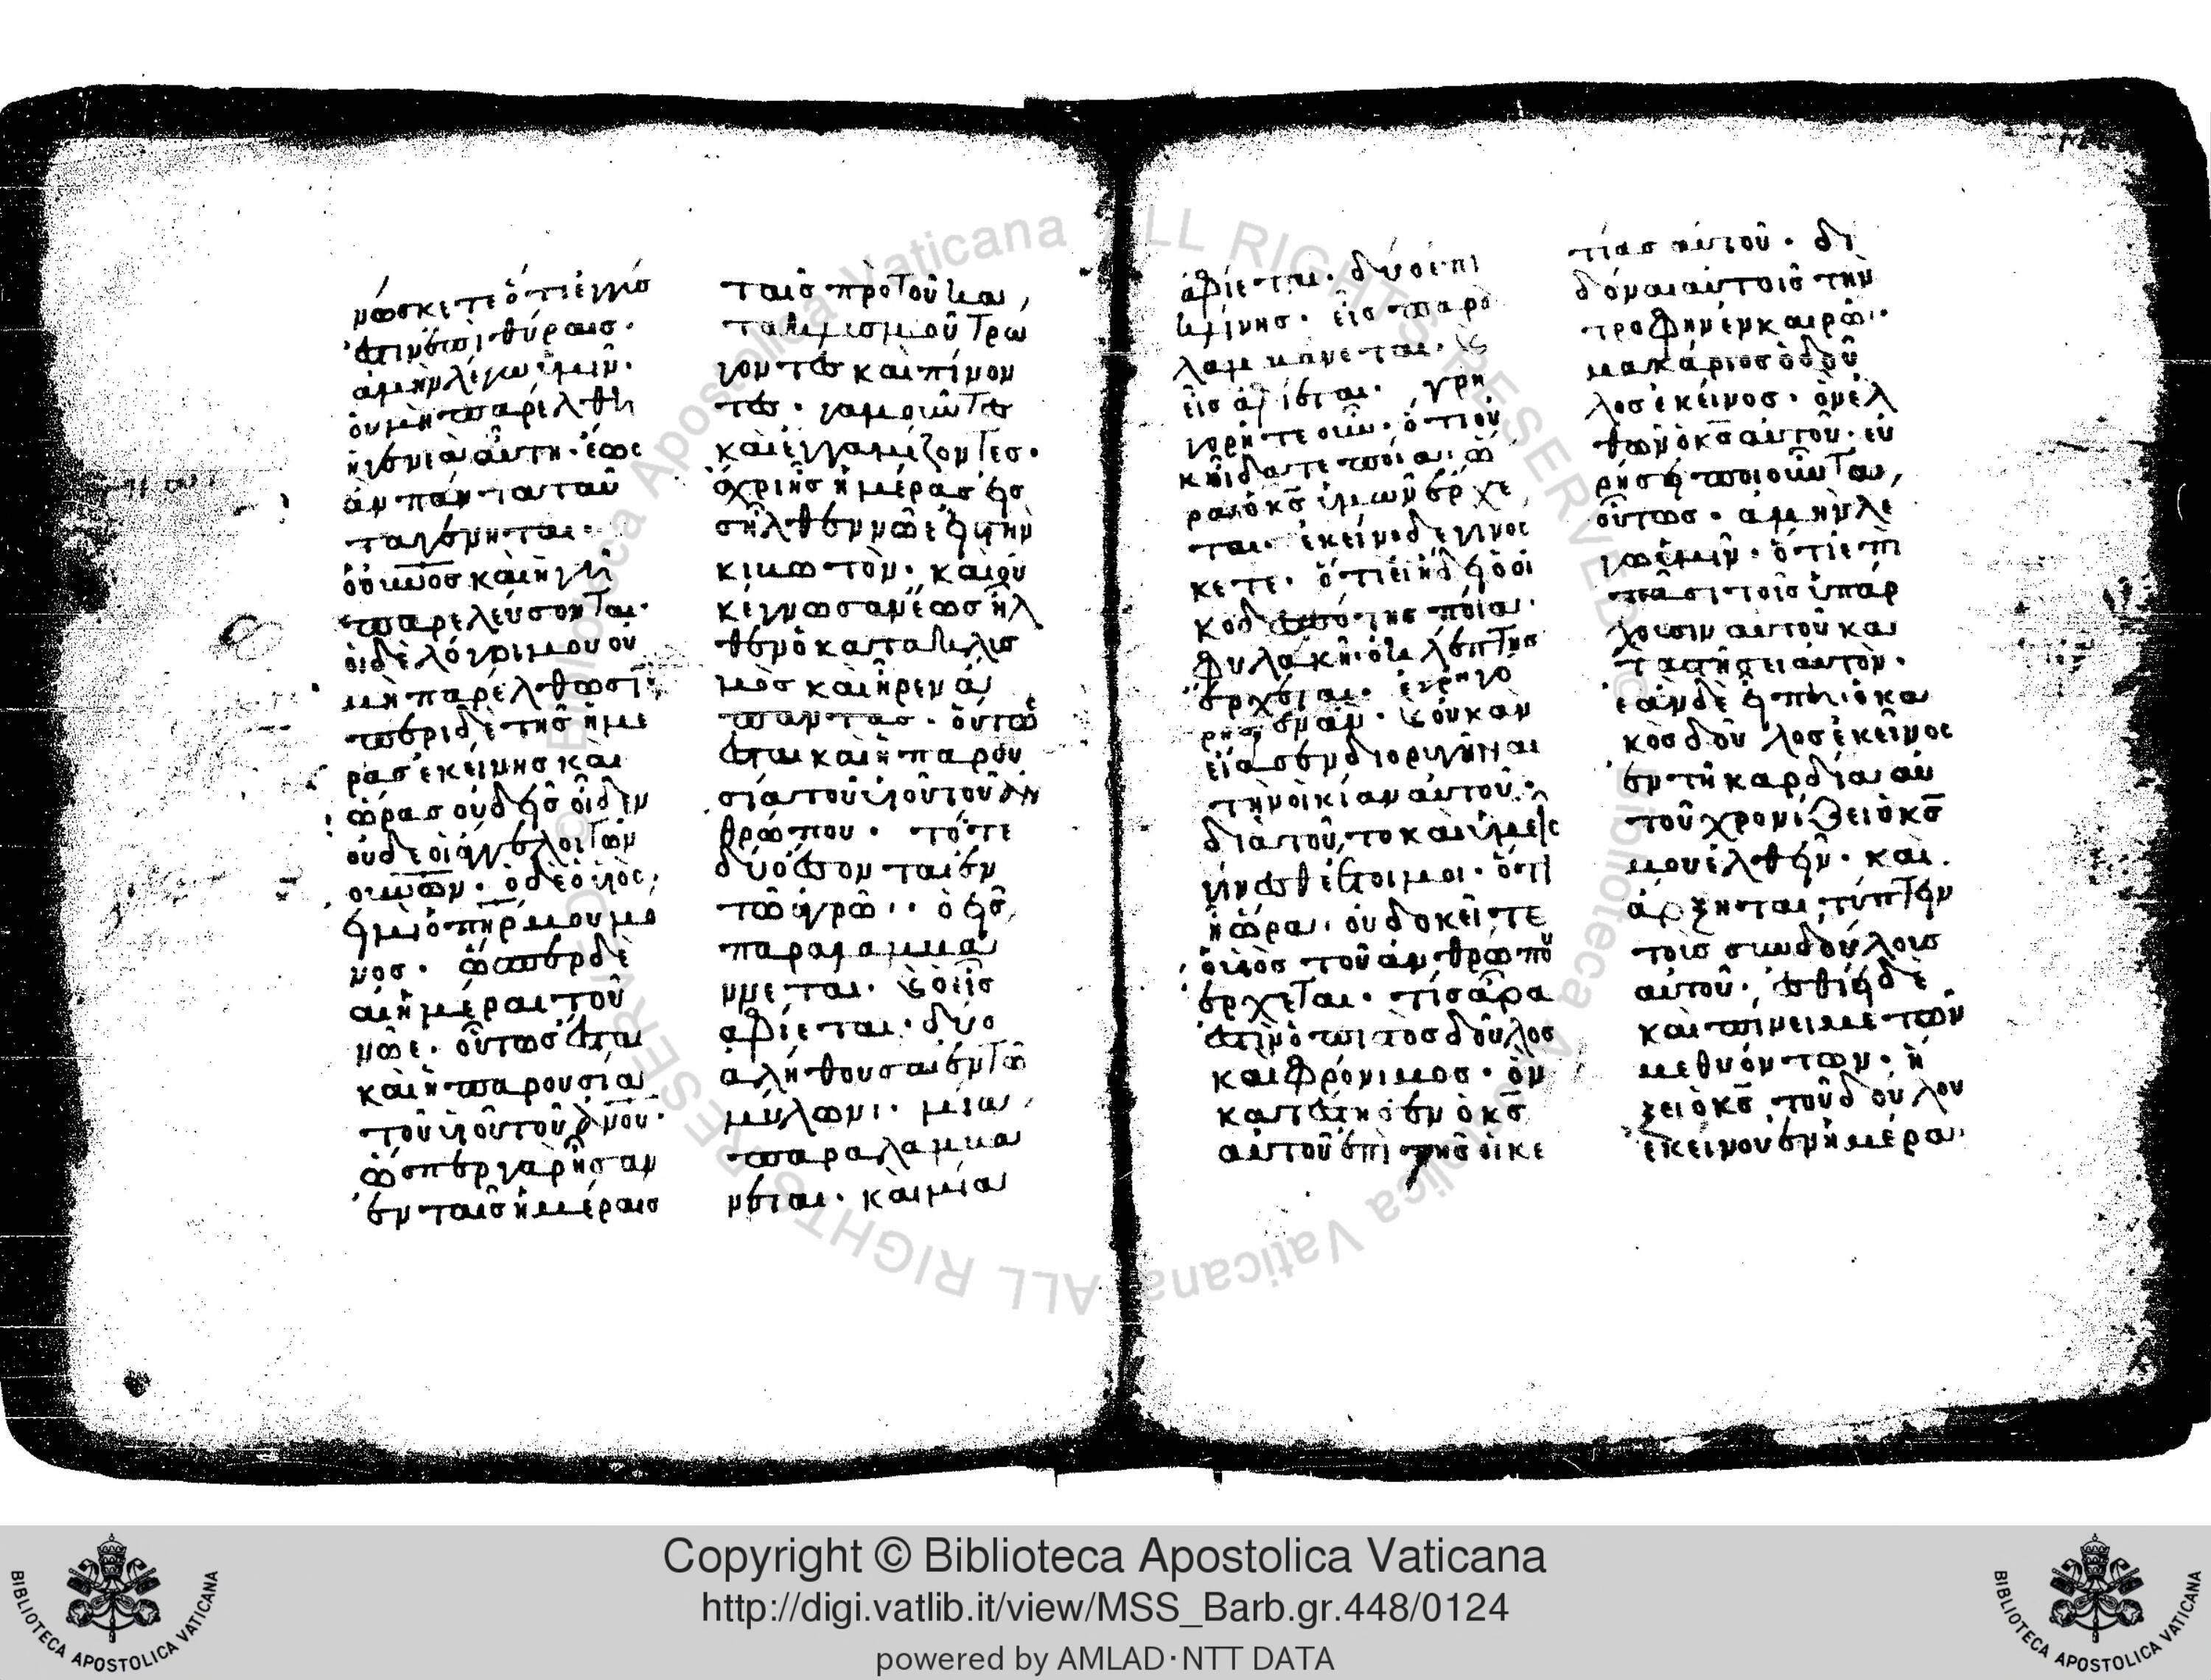 νώσκετε ὅτι ἐγγύς
ἐστιν ἐπὶ θύραις·
ἀμὴν λέγω ὑμῖν·
οὐ μὴ παρέλθη
ἡ γενεὰ αὕτη· ἕως
ἂν πάντα ταῦ
τα γένηται·
ὁ οὐνος καὶ ἡ γῆ
παρελεύσονται·
οἱ δὲ λόγοι μου οὐ
μὴ παρέλθωσι·
περὶ δὲ τῆς ἡμέ
ρας ἐκείνης καὶ
ὥρας οὐδεὶς οἶδεν
οὐδὲ οἱ ἄγγελοι τῶν
οὐνῶν· οὐδὲ ὁ υἱός,
εἰ μὴ ὁ πηρ μου μό
νος· ὥσπερ δὲ
αἱ ἡμέραι τοῦ
νῶε· οὕτως ἔσται
καὶ ἡ παρουσία
τοῦ υἱοῦ τοῦ ἀνου·
ὥσπερ γὰρ ἦσαν
ἐν ταῖς ἡμέραις
ταῖς πρὸ τοῦ κα
τακλυσμοῦ τρώ
γοντες καὶ πίνον
τες· γαμοῦντες
καὶ ἐγγαμίζοντες·
ἄχρι ἧς ἡμέρας εἰσ
σῆλθεν νῶε εἰς τὴν
κιβωτόν· καὶ οὐ
κ ἔγνωσαν ἕως ἦλ
θεν ὁ κατακλυσ
μὸς καὶ ἦρεν ἅ
παντας· οὕτως
ἔσται καὶ ἡ παρου
σία τοῦ υἱοῦ τοῦ ἀν
θρώπου· τότε
δύο ἔσονται ἐν
τῶ ἀγρῶ· ὁ εἷς
παραλαμβά
νεται· καὶ ὁ εἷς
ἀφίεται· δύο
ἀλήθουσαι ἐν τῶ
μύλωνι· μία
παραλαμβά
νεται· καὶ μία
ἀφίεται· δύο ἐπὶ
κλίνης· εἷς παρα
λαμβάνεται· καὶ
εἷς ἀφίεται· γρη
γορεῖτε οὖν· ὅτι οὐ
κ οἴδατε ποία ὥ
ρα ὁ κς ὑμῶν ἔρχε
ται· ἐκεῖνο δὲ γινώσ
κετε· ὅτι εἰ ἤδει ὁ οἰ
κοδεσπότης ποία
φυλακῆ ὁ κλέπτης
ἔρχεται· ἐγρηγό
ρησεν ἄν· καὶ οὐκ ἂν
εἴασεν διορυγῆναι
τὴν οἰκίαν αὐτοῦ·
διὰ τοῦτο καὶ ὑμεῖς
γίνεσθε ἕτοιμοι· ὅτι
ἡ ὥρα οὐ δοκεῖτε
ὁ υἱὸς τοῦ ἀνθρώπου
ἔρχεται· τίς ἄρα
ἐστὶν ὁ πιστὸς δοῦλος
καὶ φρόνιμος· ὃν
κατέστησεν ὁ κς
αὐτοῦ ἐπὶ τῆς οἰκε
τίας αὐτοῦ· δι
δόναι αὐτοῖς τὴν
τροφὴν ἐν καιρῶ·
μακάριος ὁ δοῦ
λος ἐκεῖνος· ὃν ἐλ
θὼν ὁ κς αὐτοῦ· εὑ
ρήσει ποιοῦντα
οὕτως· ἀμὴν λέ
γω ὑμῖν· ὅτι ἐπὶ
πᾶσι τοῖς ὑπάρ
χουσιν αὐτοῦ κα
ταστήσει αὐτόν·
ἐὰν δὲ εἴπη ὁ κα
κὸς δοῦλος ἐκεῖνος
ἐν τῆ καρδία αὐ
τοῦ χρονίζει ὁ κς
μου ἐλθεῖν· καὶ
ἄρξηται τύπτειν
τοὺς συνδούλους
αὐτοῦ· ἐσθίει δὲ
καὶ πίνει μετὰ τῶν
μεθυόντων· ἥ
ξει ὁ κς τοῦ δούλου
ἐκείνου ἐν ἡμέρα
Copyright © Biblioteca Apostolica Vaticana
http://digi.vatlib.it/view/MSS_Barb.gr.448/0124
powered by AMLAD·NTT DATA
BIBLIOTECA APOSTOLICA VATICANA
BIBLIOTECA APOSTOLICA VATICANA